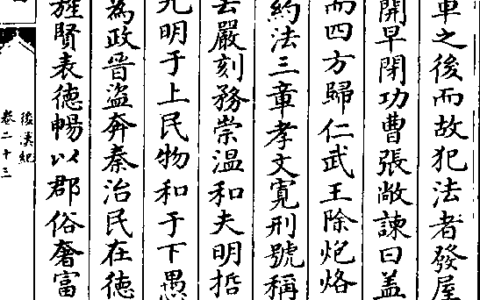 車之後而故犯法者發屋
開早閉功曹張敞諫曰盖
而四方歸仁武王除炮烙
約法三章孝文寬刑號稱
去嚴刻務崇温和夫明哲
光明于上民物和于下愚
為政晉盗奔秦治民在徳
旌賢表徳暢以郡俗奢富
後漢紀
卷二十三